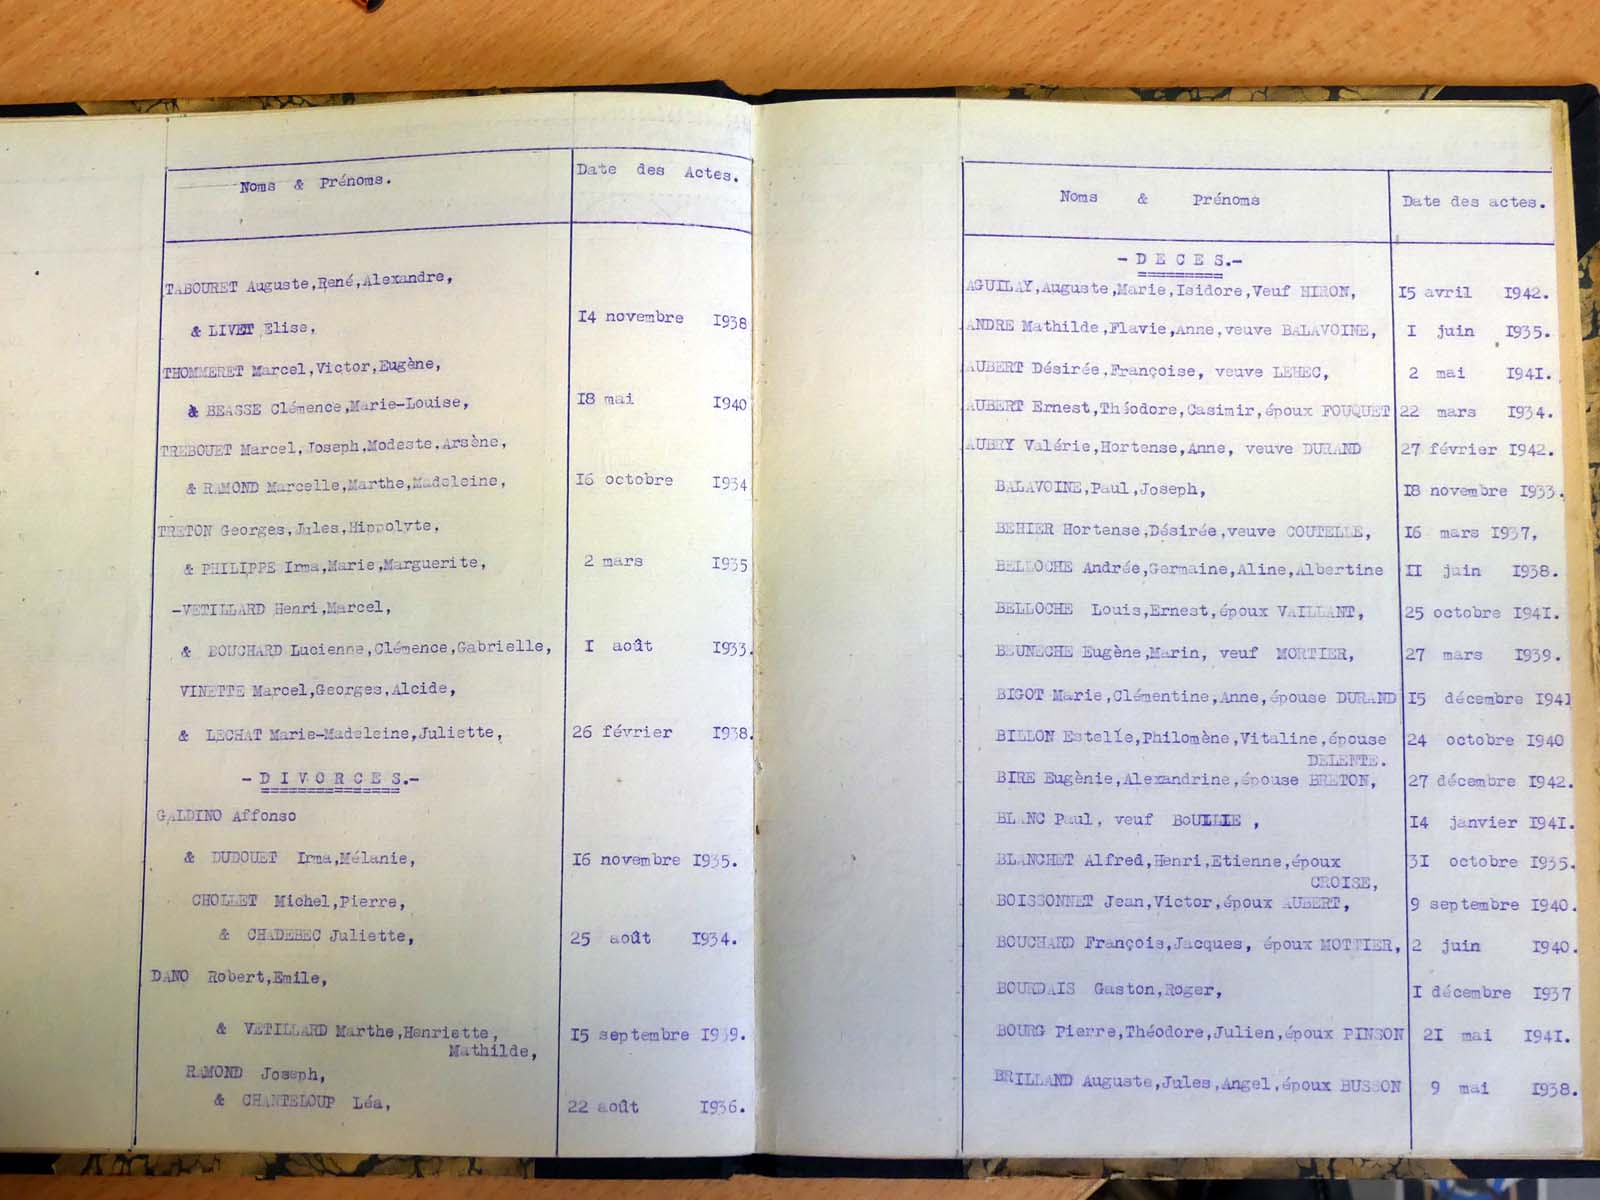 Noms & Prénoms. Date des Actes.
TABOURET Auguste,René,Alexandre,
& LIVET Elise, 14 novembre 1938
THOMMERET Marcel,Victor,Eugène,
& BEASSE Clémence,Marie-Louise, 18 mai 1940
TREBOUET Marcel,Joseph,Modeste,Arsène,
& RAMOND Marcelle,Marthe,Madeleine, 16 octobre 1934
TRETON Georges,Jules,Hippolyte,
& PHILIPPE Irma,Marie,Marguerite, 2 mars 1935
-VETILLARD Henri,Marcel,
& BOUCHARD Lucienne,Clémence,Gabrielle, I août 1933.
VINETTE Marcel,Georges,Alcide,
& LECHAT Marie-Madeleine,Juliette, 26 février 1938.
-DIVORCES.-
GALDINO Affonso
& DUDOUET Irma,Mélanie, 16 novembre 1935.
CHOLLET Michel,Pierre,
& CHADEBEC Juliette, 25 août 1934.
DANO Robert,Emile,
& VETILLARD Marthe,Henriette, 15 septembre 1939.
Mathilde,
RAMOND Joseph,
& CHANTELOUP Léa, 22 août 1936.
Noms & Prénoms Date des actes.
-DECES.-
AGUILAY,Auguste,Marie,Isidore,Veuf HIRON, 15 avril 1942.
ANDRE Mathilde,Flavie,Anne,veuve BALAVOINE, I juin 1935.
AUBERT Désirée,Françoise, veuve LEHEC, 2 mai 1941.
AUBERT Ernest,Théodore,Casimir,époux FOUQUET 22 mars 1934.
AUBRY Valérie,Hortense,Anne, veuve DURAND 27 février 1942.
BALAVOINE,Paul,Joseph, 18 novembre 1933.
BEHIER Hortense,Désirée,veuve COUTELLE, 16 mars 1937,
BELLOCHE Andrée,Germaine,Aline,Albertine II juin 1938.
BELLOCHE Louis,Ernest,époux VAILLANT, 25 octobre 1941.
BEUNECHE Eugène,Marin, veuf MORTIER, 27 mars 1939.
BIGOT Marie,Clémentine,Anne,épouse DURAND 15 décembre 1941
BILLON Estelle,Philomène,Vitaline,épouse 24 octobre 1940
DELENTE.
BIRE Eugènie,Alexandrine,épouse BRETON, 27 décembre 1942.
BLANC Paul, veuf BOULLIE , 14 janvier 1941.
BLANCHET Alfred,Henri,Etienne,époux 31 octobre 1935.
CROISE,
BOISSONNET Jean,Victor,époux AUBERT, 9 septembre 1940.
BOUCHARD François,Jacques, époux MOTTIER, 2 juin 1940.
BOURDAIS Gaston,Roger, I décembre 1937
BOURG Pierre,Théodore,Julien,époux PINSON 21 mai 1941.
BRILLAND Auguste,Jules,Angel,époux BUSSON 9 mai 1938.